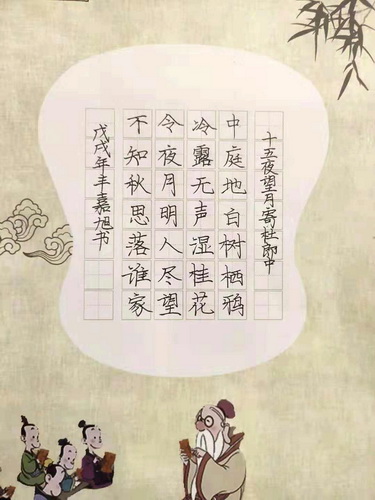 十五夜望月寄杜郎中
中庭地白树栖鸦
冷露无声湿桂花
今夜月明人尽望
不知秋思落谁家
戊戌年丰嘉旭书